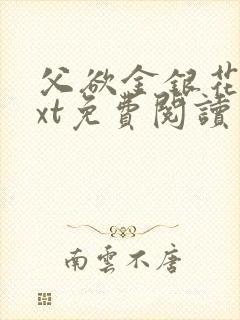 父欲金銀花
xt免費閱讀
南雲不唐